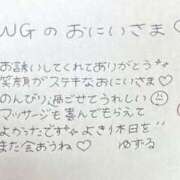 NGのおにいさま♡
お誘いしてくれてありがとう
笑顔がステキなおにいさま♡
のんびり過ごせてうれしい
マッサージも喜んでもらえて
よかったです よき休日を
また会おうね♡ ゆずる